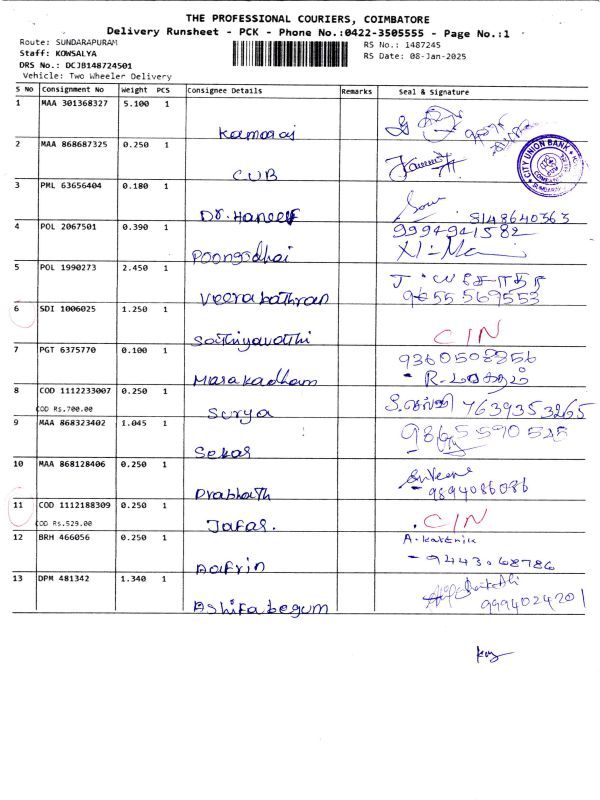 THE PROFESSIONAL COURIERS, COIMBATORE
Delivery Runsheet - PCK - Phone No.:0422-3505555 - Page No.:1
Route: SUNDARAPURAM
RS No.: 1487245
Staff: KOWSALYA
RS Date: 08-Jan-2025
DRS No.: DCJB148724501
Vehicle: Two Wheeler Delivery
S No Consignment No Weight PCS Consignee Details Remarks Seal & Signature
1 MAA 301368327 5.100 1
Kamaraj
2 MAA 868687325 0.250 1
CUB
CITY UNION BANK
3 PML 63656404 0.180 1
Dr. Haneef
8148640363
4 POL 2067501 0.390 1
9994941582
Poongodhai
5 POL 1990273 2.450 1
Veerabathran
9655 569553
6 SDI 1006025 1.250 1
Sathiyavathi CIN
7 PGT 6375770 0.100 1
9360508356
Marakadham
8 COD 1112233007 0.250 1
COD Rs.700.00
Surya
7639353265
9 MAA 868323402 1.045 1
Sekar
10 MAA 868128406 0.250 1
Prabhath
- 9894086086
11 COD 1112188309 0.250 1
COD Rs.529.00
Jafar. CIN
12 BRH 466056 0.250 1
A. Karthik
- 9443068786
Aafrin
13 DPM 481342 1.340 1
Ashifabegum
9994024201